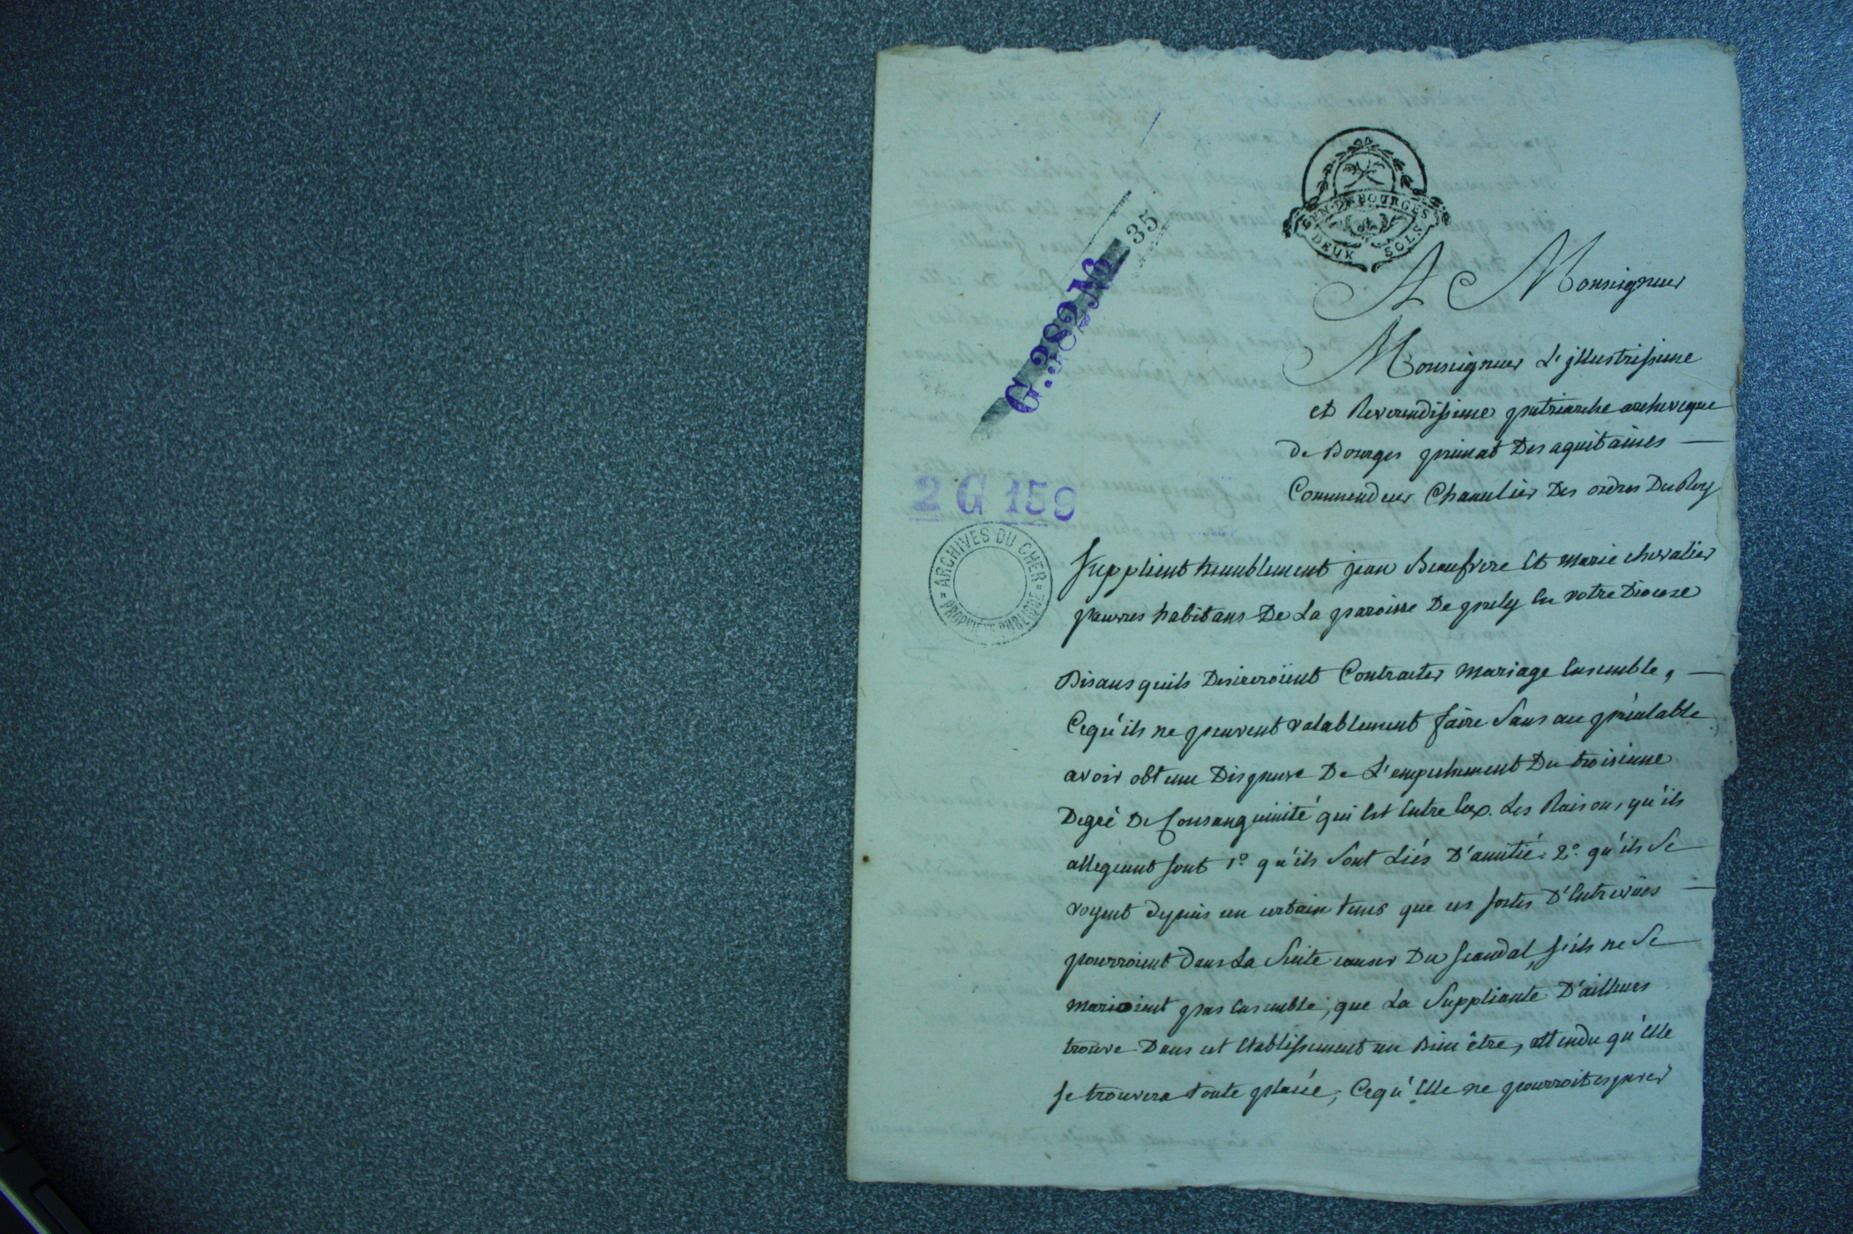 GEN. DE BOURGES
DEUX SOLS.
35
G. 382 No
2 G 159
ARCHIVES DU CHER
PROPRIÉTÉ PUBLIQUE
A Monseigneur
Monseigneur L'jllustrissime
et Reverendissime patriarche archeveque
de Bourges primat Des aquitaines —
Commendeur Chancelier Des ordres Du Roy
Supplient humblement jean Beaufrere Et marie chevalier
pauvres habitans De La paroisse De prely En votre Diocese
Disans quils Desireroïent Contracter mariage Ensemble, —
Cequ'ils ne peuvent valablement faire Sans au préalable
avoir obtenu Dispense De L'empechement Du troisieme
Degré De Consanguinité qui Est Entre Eux. Les Raisons qu'ils
alleguent sont 1.º qu'ils Sont Liés D'amitié. 2.º qu'ils Se
voyent depuis un certain tems que ces sortes D'Entrevües —
pourroient dans La Suite causer Du scandal, s'ils ne Se
marioient pas Ensemble; que La Suppliante D'ailleurs
trouve Dans cet Etablissement un Bien être, attendu qu'Elle
se trouvera toute placée; Cequ'Elle ne pourroit esperer